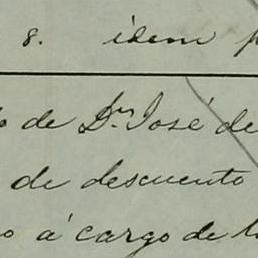 8. idem p
o de Dn. José de
de descuento
o á cargo de l